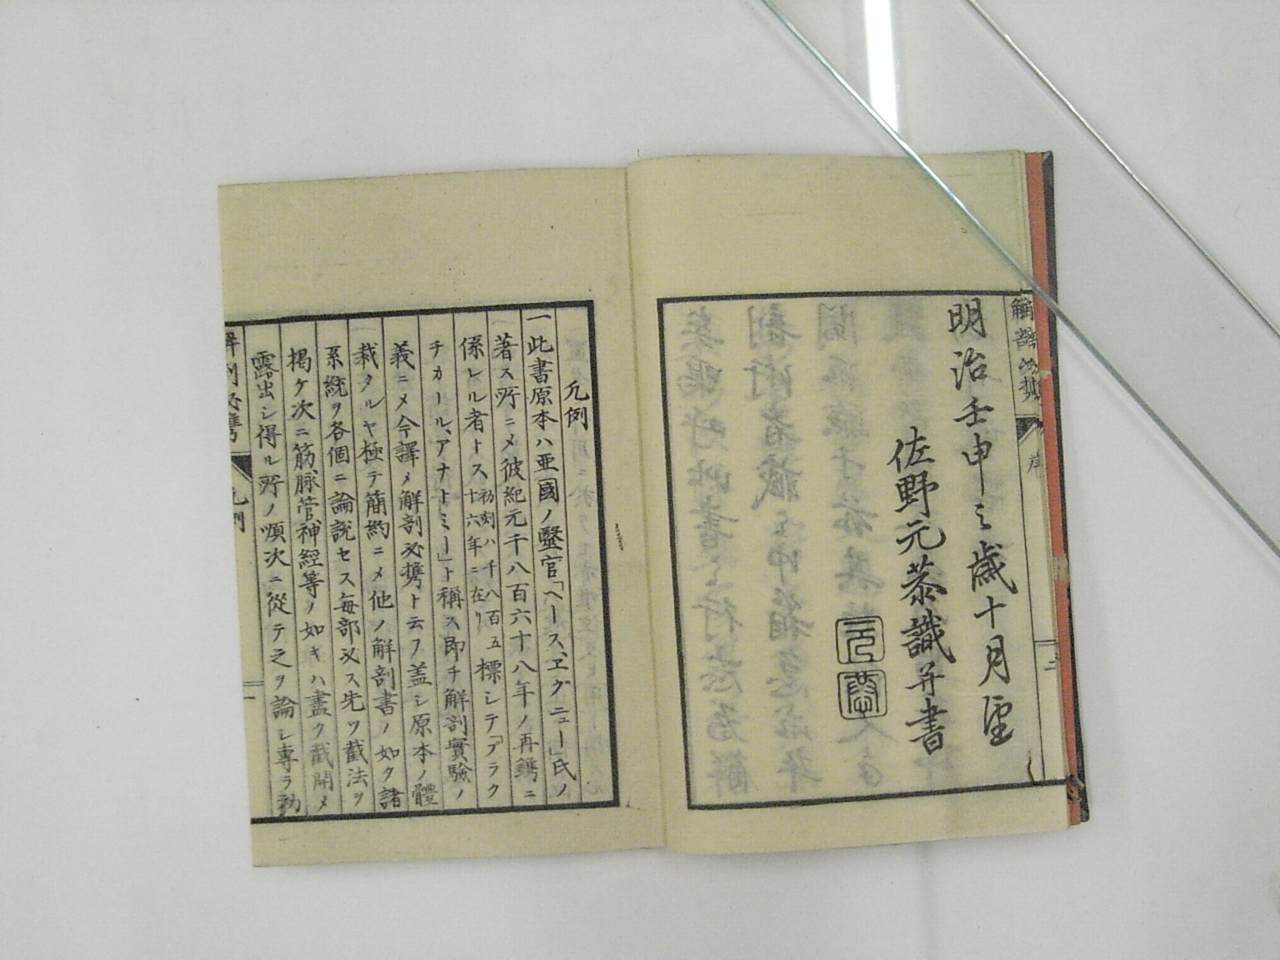 明治壬申之歳十月望
佐野元恭識并書
凡例
一此書原本ハ亜國ノ毉官「ヘース、ヱグニュー」氏ノ
著ス所ニメ彼紀元千八百六十八年ノ再鐫ニ
係レル者トス初刻ハ千八百五十六年ニ在リ標シテ「プラク
チカール、アナトミー」ト稱ス即チ解剖實驗ノ
義ニメ今譯メ解剖必携ト云フ蓋シ原本ノ體
裁タルヤ極テ簡約ニメ他ノ解剖書ノ如ク諸
系統ヲ各個ニ論説セス毎部必ス先ツ截法ヲ
掲ケ次ニ筋脉管神經等ノ如キハ盡ク截開メ
露出シ得ル所ノ順次ニ從テ之ヲ論シ専ラ
凡例